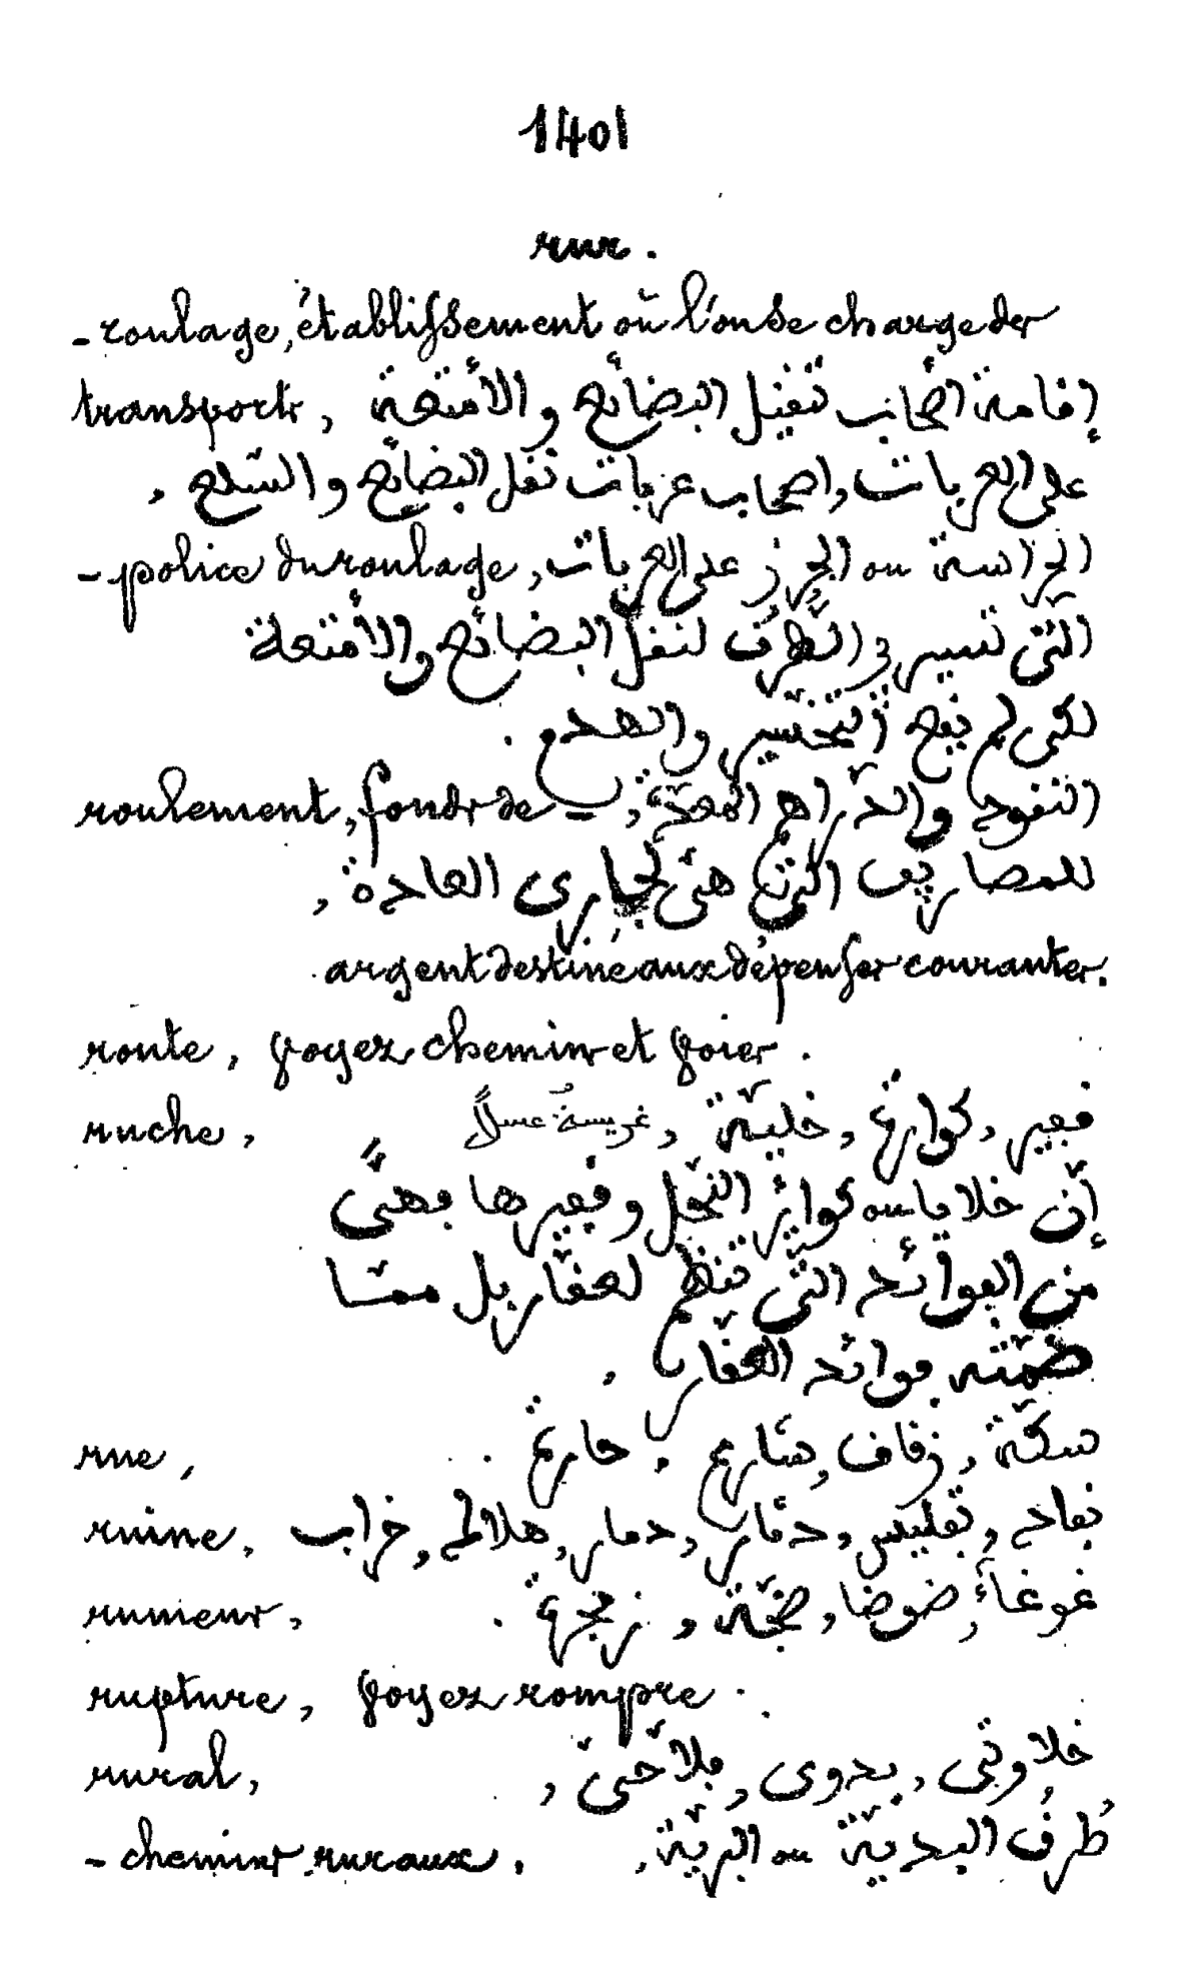 1401
rur.
- roulage, établissement où l'on se charge des
transports, إقامة أصحاب تنقيل البضائع والأمتعة
على العربات, اصحاب عربات نقل البضائع والسّلع,
- police du roulage, الحراسة ou الحرز على العربات
التّي تسير في الطُّرُق لنقل البضائع والأمتعة
لكى لم يقع التخسير والهدم.
roulement, fonds de -, النقود والدّراهم المعدّة
للمصاريف التّي هيّ لجارى العادة,
argent destiné aux dépenses courantes.
route, voyez chemin et voies.
ruche, قفير, كوارة, خليّة, غريسةُ عسلاً
إنّ خلايا ou كوائر النّحل وقفيرها فهيّ
من الفوائد التّي تنظم لعقار بل ممّا
ضمّته فوائد العقار.
rue, سكّة, زقاق, شارع, حارة.
ruine, نفاد, تفليس, دمّار, دمار, هلاك, خراب
rumeur, غوغأ, ضوضا, ضجّة, زمجرة.
rupture, voyez rompre.
rural, خلاويّ, بدوى, فلاّحيّ,
- chemins ruraux. طُرُق البديّة ou البريّة,